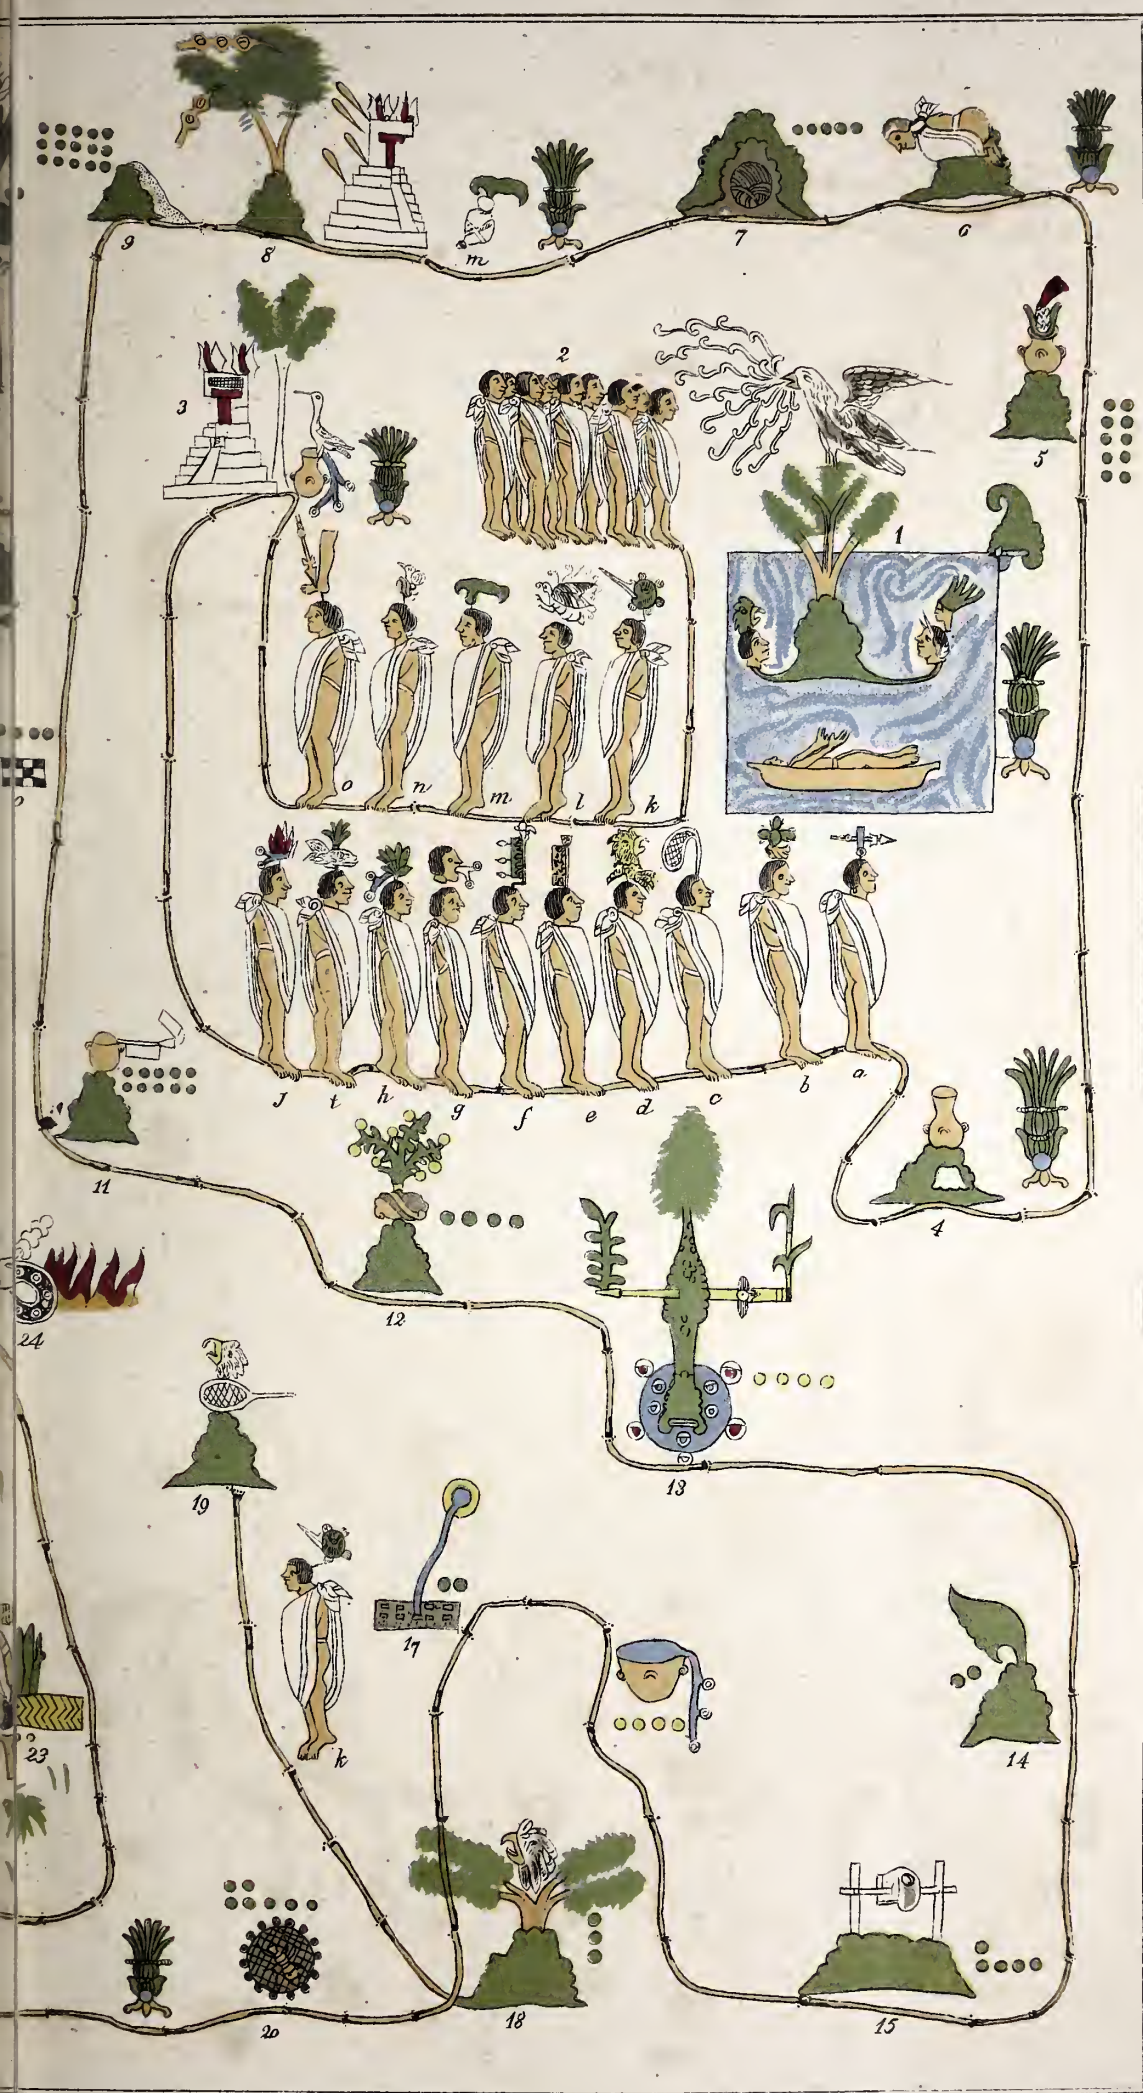 9
8
m
7
6
2
3
5
1
o
n
m
l
k
J
t
h
g
f
e
d
c
b
a
11
4
12
24
13
19
17
k
23
14
18
20
15